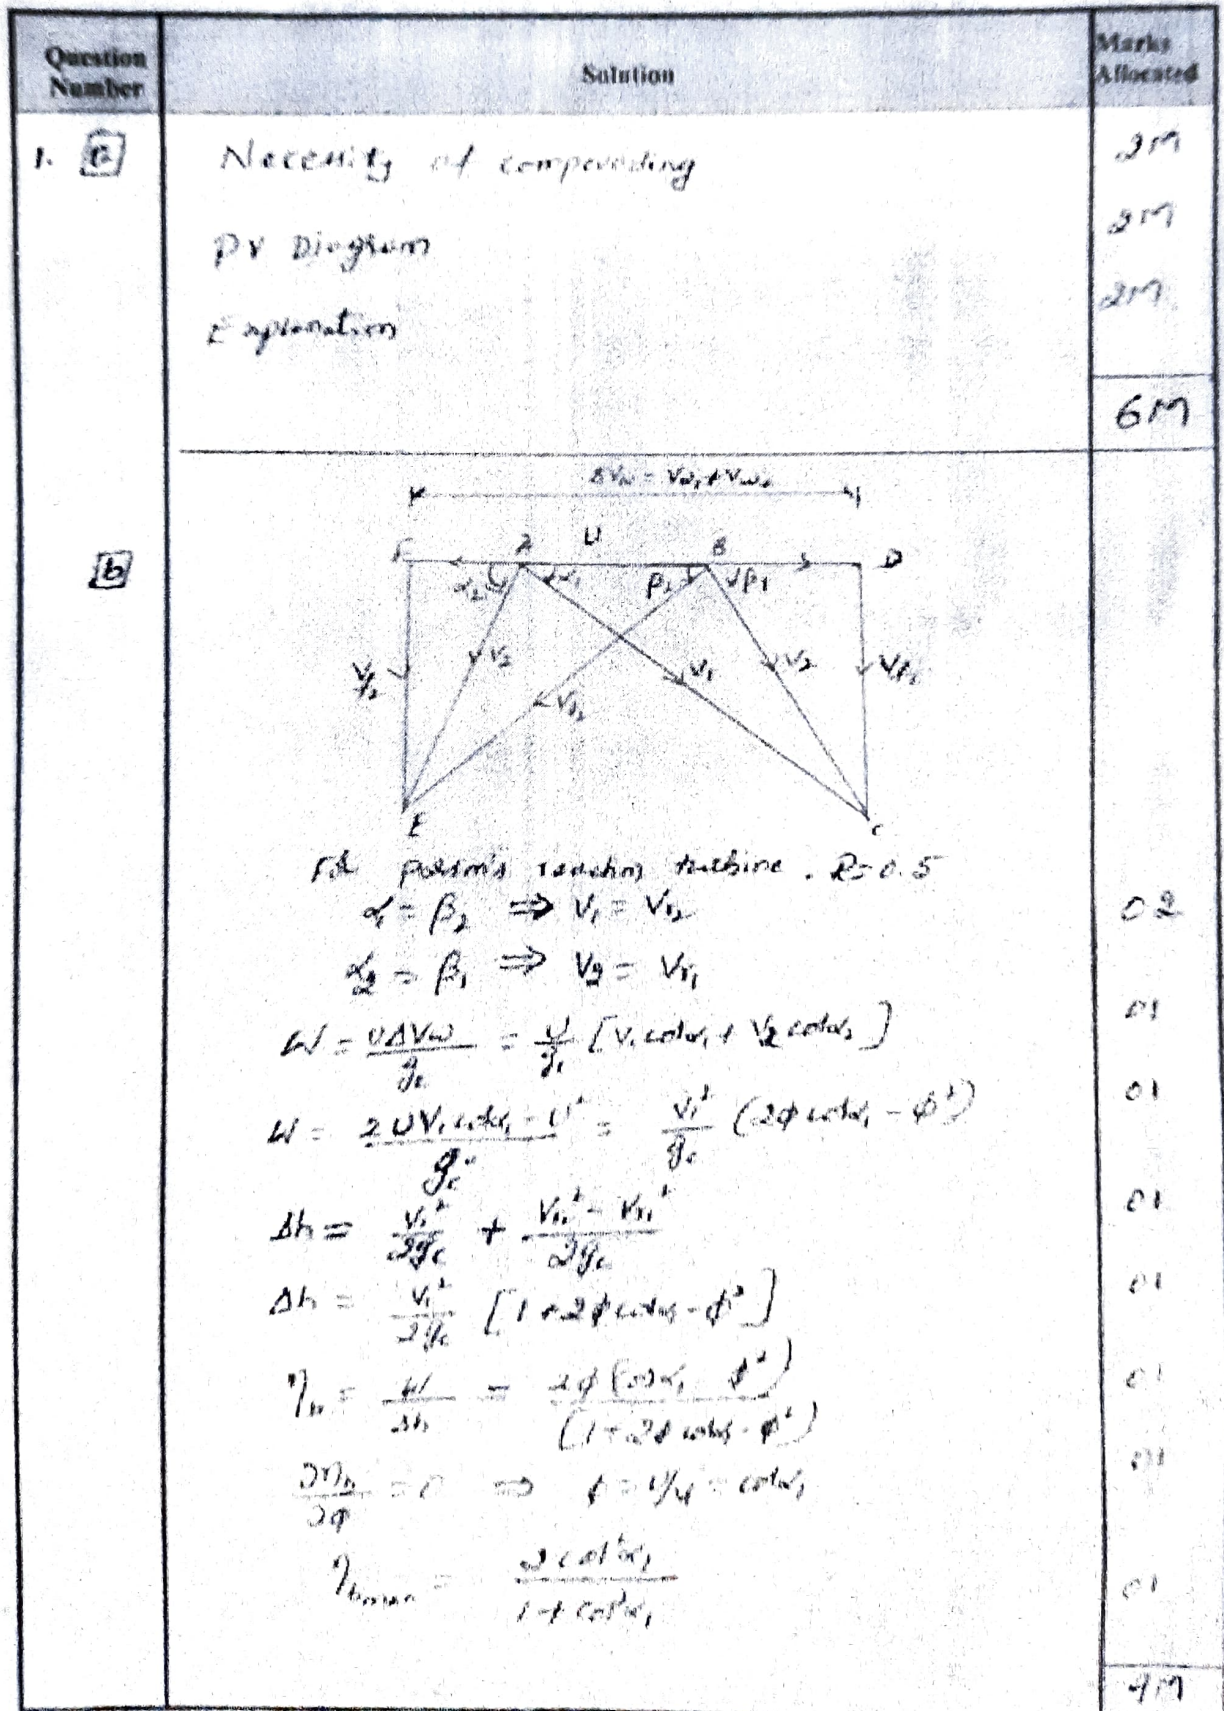 Question Number | Solution | Marks Allocated
1. a Necessity of compounding 2M
PV Diagram 2M
Explanation 2M
6M
b
ΔVw = Vw₁ + Vw₂
F A U B D
α₂ α₁ β₂ β₁
Vf₂ V₂ Vr₂ V₁ V₂ Vf₁
E C
For parson's reaction turbine. R=0.5
α₁ = β₂ ⇒ V₁ = Vr₂ 02
α₂ = β₁ ⇒ V₂ = Vr₁
W = UΔVw/gc = U/gc [V₁ cosα₁ + V₂ cosα₂] 01
W = (2UV₁ cosα₁ - U²)/gc = V₁²/gc (2φ cosα₁ - φ²) 01
Δh = V₁²/2gc + (Vr₂² - Vr₁²)/2gc 01
Δh = V₁²/2gc [1 + 2φ cosα₁ - φ²] 01
ηb = W/Δh = 2φ (cosα₁ φ²)/(1 + 2φ cosα₁ - φ²) 01
∂ηb/∂φ = 0 ⇒ φ = U/V₁ = cosα₁ 01
ηbmax = 2cos²α₁/(1 + cos²α₁) 01